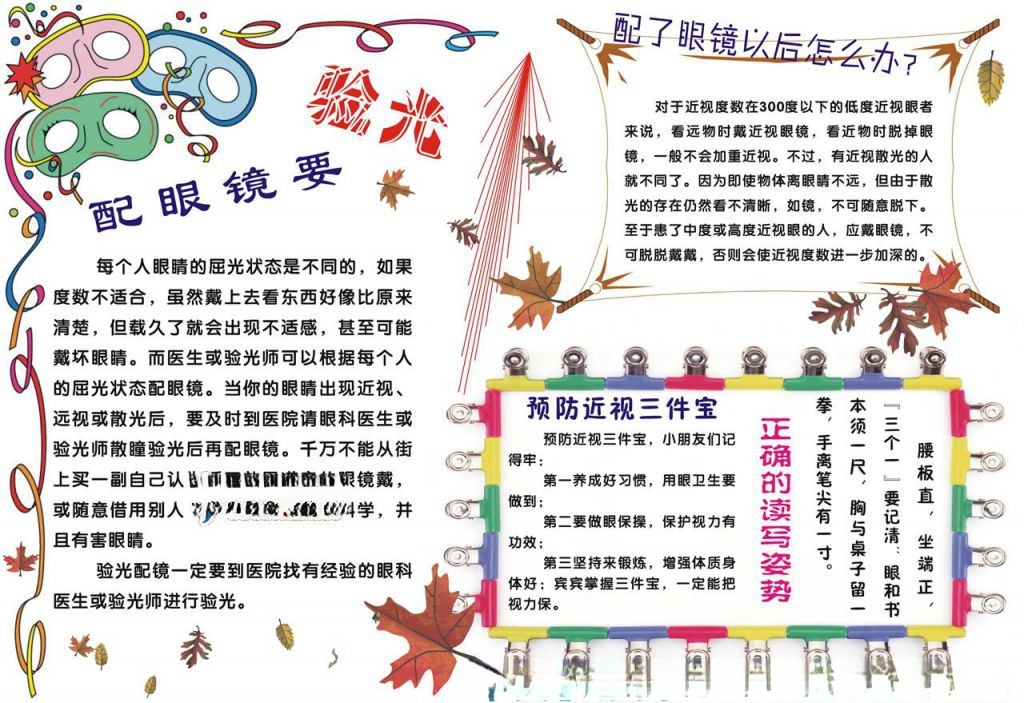 验光
配眼镜要
每个人眼睛的屈光状态是不同的，如果
度数不适合，虽然戴上去看东西好像比原来
清楚，但载久了就会出现不适感，甚至可能
戴坏眼睛。而医生或验光师可以根据每个人
的屈光状态配眼镜。当你的眼睛出现近视、
远视或散光后，要及时到医院请眼科医生或
验光师散瞳验光后再配眼镜。千万不能从街
上买一副自己认 眼镜戴，
或随意借用别人 学，并
且有害眼睛。
验光配镜一定要到医院找有经验的眼科
医生或验光师进行验光。
配了眼镜以后怎么办？
对于近视度数在300度以下的低度近视眼者
来说，看远物时戴近视眼镜，看近物时脱掉眼
镜，一般不会加重近视。不过，有近视散光的人
就不同了。因为即使物体离眼睛不远，但由于散
光的存在仍然看不清晰，如镜，不可随意脱下。
至于患了中度或高度近视眼的人，应戴眼镜，不
可脱脱戴戴，否则会使近视度数进一步加深的。
预防近视三件宝
预防近视三件宝，小朋友们记
得牢；
第一养成好习惯，用眼卫生要
做到；
第二要做眼保操，保护视力有
功效；
第三坚持来锻炼，增强体质身
体好；宾宾掌握三件宝，一定能把
视力保。
正确的读写姿势
腰板直，坐端正，
『三个一』要记清：眼和书
本须一尺，胸与桌子留一
拳，手离笔尖有一寸。